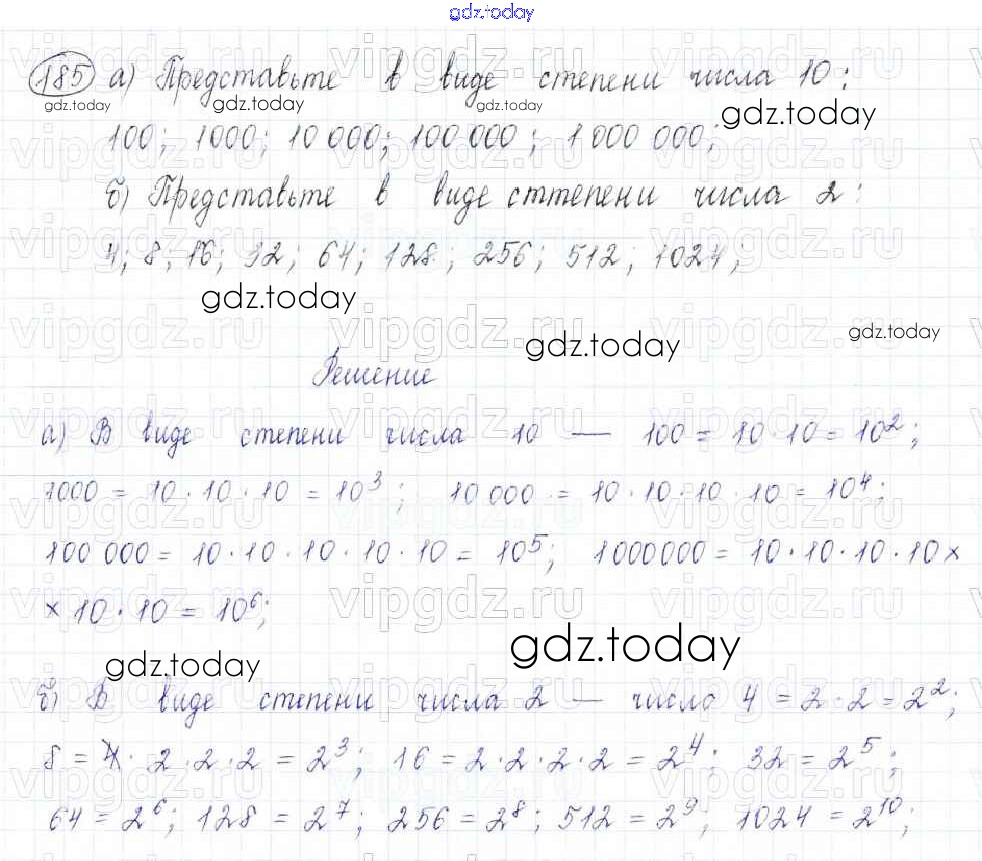 gdz.today
185 а) Представьте в виде степени числа 10:
100; 1000; 10 000; 100 000; 1 000 000;
б) Представьте в виде сттепени числа 2:
4; 8; 16; 32; 64; 128; 256; 512; 1024;
Решение
а) В виде степени числа 10 — 100 = 10 · 10 = 10²;
1000 = 10 · 10 · 10 = 10³; 10 000 = 10 · 10 · 10 · 10 = 10⁴;
100 000 = 10 · 10 · 10 · 10 · 10 = 10⁵; 1000000 = 10 · 10 · 10 · 10 ×
× 10 · 10 = 10⁶;
б) В виде степени числа 2 — число 4 = 2 · 2 = 2²;
8 = 2 · 2 · 2 = 2³; 16 = 2 · 2 · 2 · 2 = 2⁴; 32 = 2⁵;
64 = 2⁶; 128 = 2⁷; 256 = 2⁸; 512 = 2⁹; 1024 = 2¹⁰;